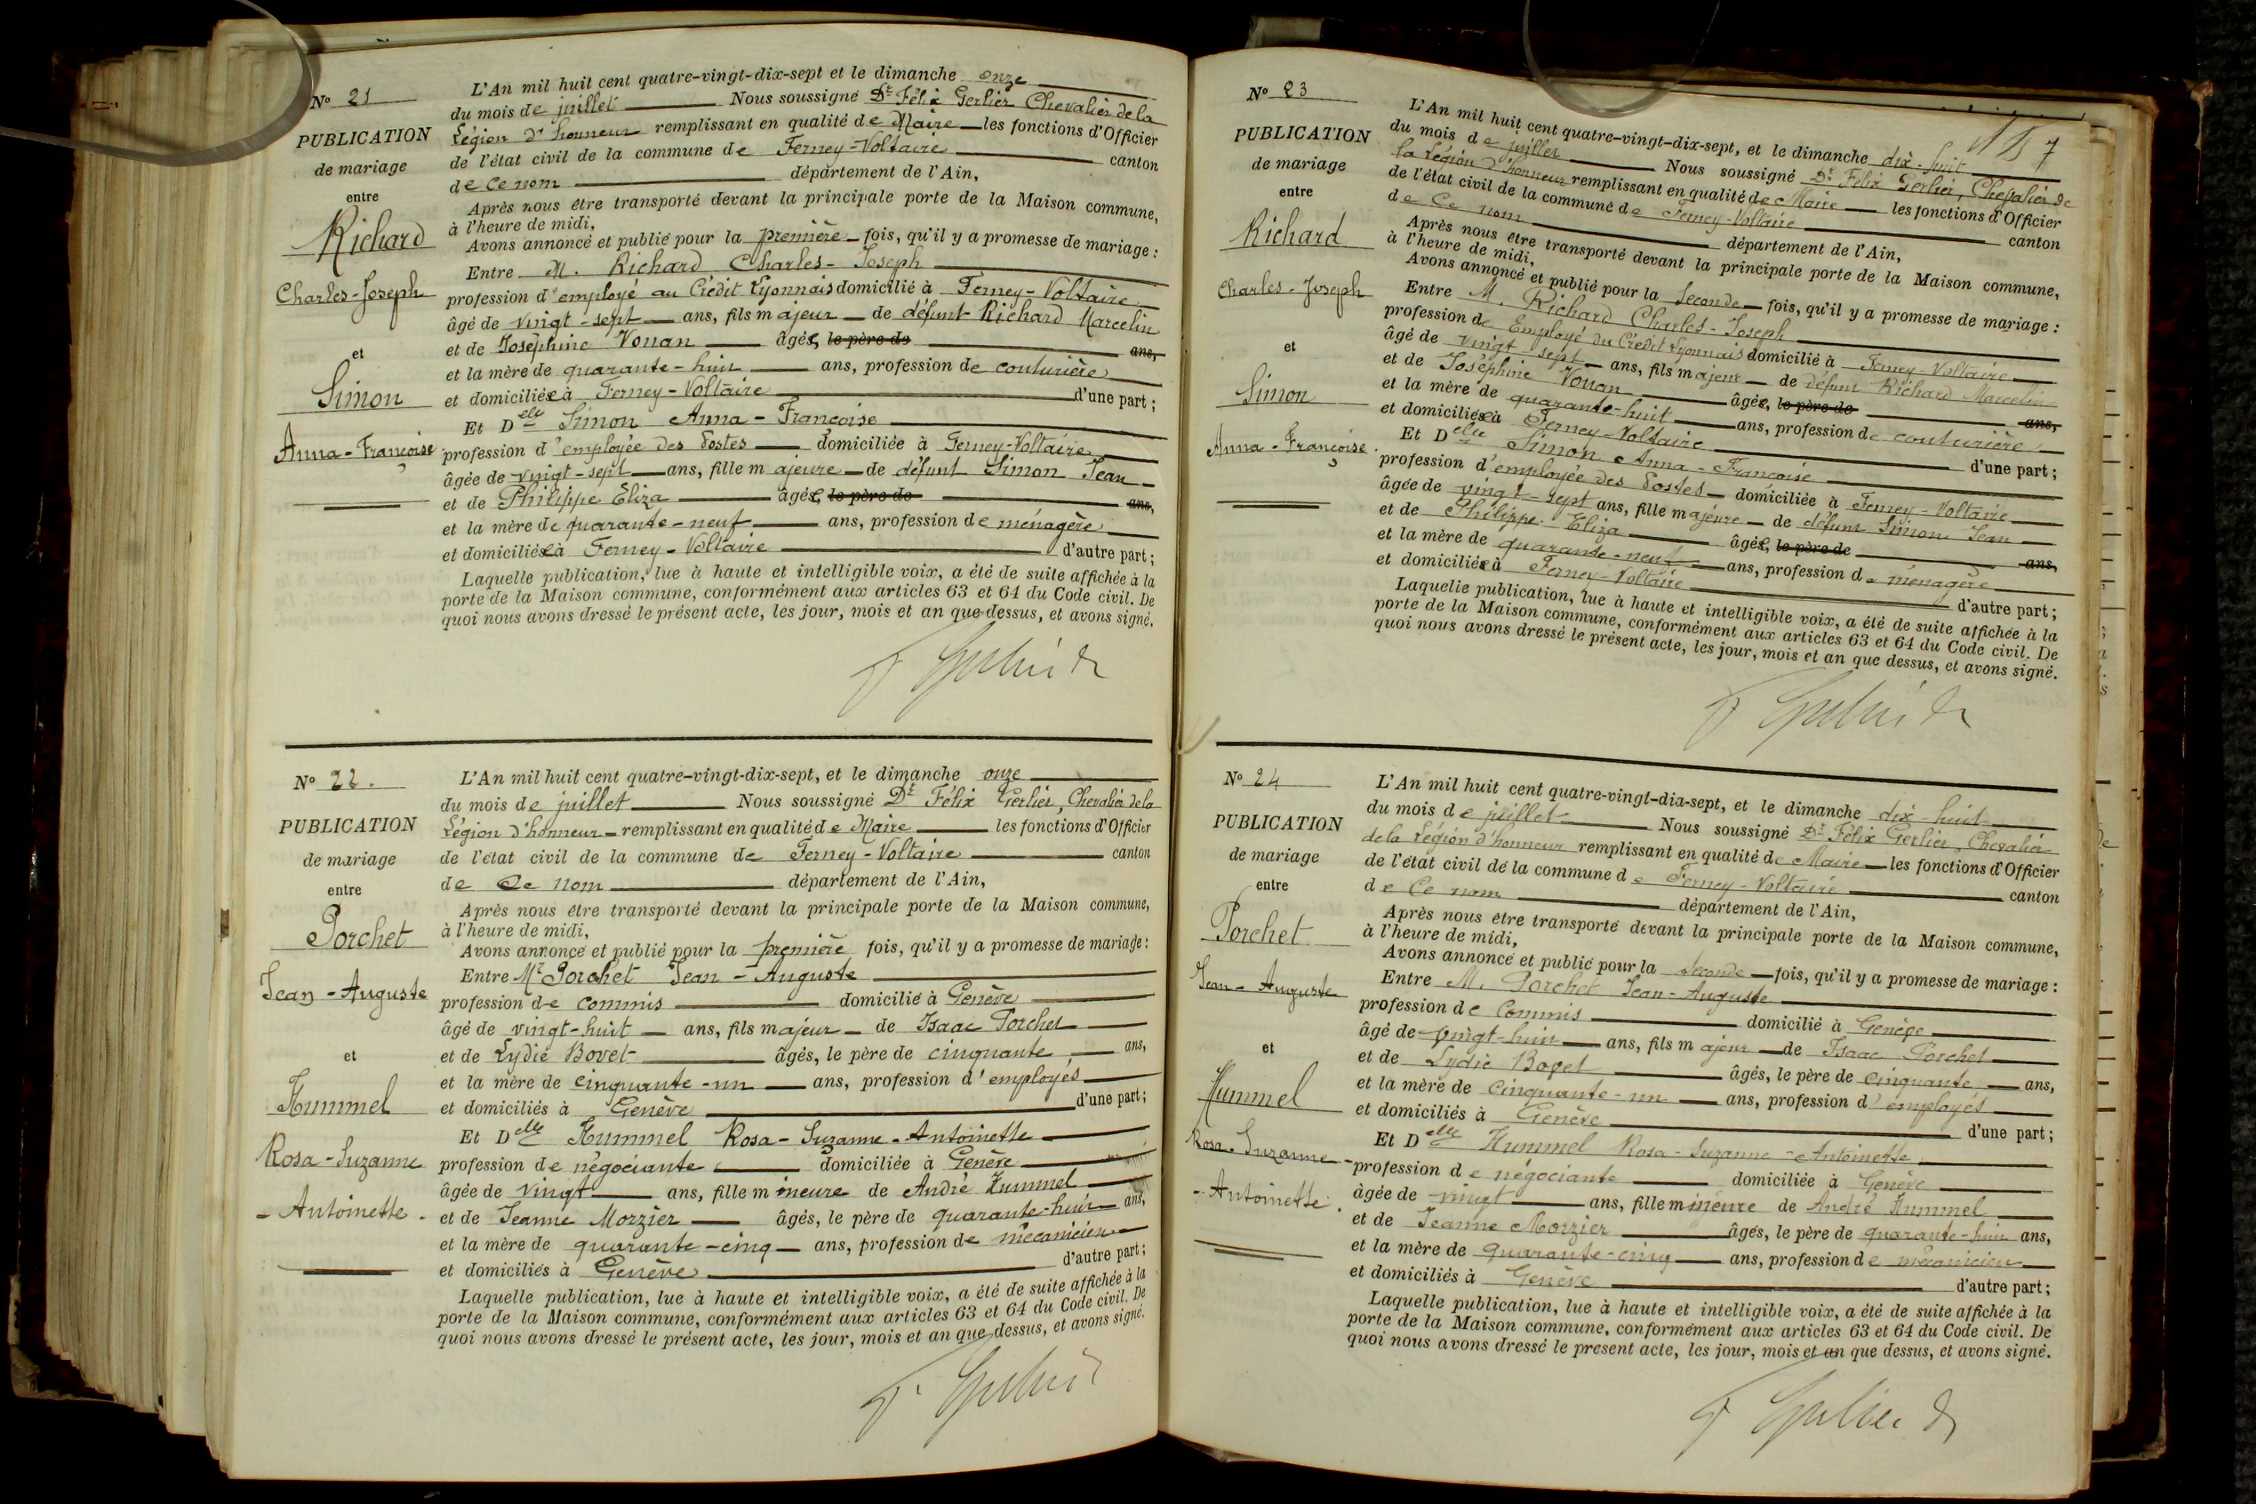 N° 21
PUBLICATION
de mariage
entre
Richard
Charles-Joseph
et
Simon
Anna-Françoise
L'An mil huit cent quatre-vingt-dix-sept et le dimanche onze
du mois de juillet Nous soussigné Dr Félix Gerlier Chevalier de la
Légion d'honneur remplissant en qualité de Maire les fonctions d'Officier
de l'état civil de la commune de Ferney-Voltaire canton
de Ce nom département de l'Ain,
Après nous être transporté devant la principale porte de la Maison commune,
à l'heure de midi,
Avons annoncé et publié pour la première fois, qu'il y a promesse de mariage :
Entre M. Richard Charles-Joseph
profession d'employé au Crédit Lyonnais domicilié à Ferney-Voltaire
âgé de vingt-sept ans, fils majeur de défunt Richard Marcelin
et de Joséphine Vouan âgée, le père de ans,
et la mère de quarante-huit ans, profession de couturière
et domiciliée à Ferney-Voltaire d'une part ;
Et Delle Simon Anna-Françoise
profession d'employée des Postes domiciliée à Ferney-Voltaire
âgée de vingt-sept ans, fille majeure de défunt Simon Jean
et de Philippe Eliza âgée, le père de ans,
et la mère de quarante-neuf ans, profession de ménagère
et domiciliée à Ferney-Voltaire d'autre part ;
Laquelle publication, lue à haute et intelligible voix, a été de suite affichée à la
porte de la Maison commune, conformément aux articles 63 et 64 du Code civil. De
quoi nous avons dressé le présent acte, les jour, mois et an que dessus, et avons signé.
N° 22.
PUBLICATION
de mariage
entre
Porchet
Jean-Auguste
et
Hummel
Rosa-Suzanne
-Antoinette.
L'An mil huit cent quatre-vingt-dix-sept, et le dimanche onze
du mois de juillet Nous soussigné Dr Félix Gerlier, Chevalier de la
Légion d'honneur remplissant en qualité de Maire les fonctions d'Officier
de l'état civil de la commune de Ferney-Voltaire canton
de Ce nom département de l'Ain,
Après nous être transporté devant la principale porte de la Maison commune,
à l'heure de midi,
Avons annoncé et publié pour la première fois, qu'il y a promesse de mariage :
Entre Mr Porchet Jean-Auguste
profession de commis domicilié à Genève
âgé de vingt-huit ans, fils majeur de Isaac Porchet
et de Lydie Bovet âgés, le père de cinquante ans,
et la mère de cinquante-un ans, profession d'employés
et domiciliés à Genève d'une part ;
Et Delle Hummel Rosa-Suzanne-Antoinette
profession de négociante domiciliée à Genève
âgée de vingt ans, fille mineure de André Hummel
et de Jeanne Morzier âgés, le père de quarante-huit ans,
et la mère de quarante-cinq ans, profession de mécanicien
et domiciliés à Genève d'autre part ;
Laquelle publication, lue à haute et intelligible voix, a été de suite affichée à la
porte de la Maison commune, conformément aux articles 63 et 64 du Code civil. De
quoi nous avons dressé le présent acte, les jour, mois et an que dessus, et avons signé.
N° 23
PUBLICATION
de mariage
entre
Richard
Charles-Joseph
et
Simon
Anna-Françoise.
7
L'An mil huit cent quatre-vingt-dix-sept, et le dimanche dix-huit
du mois de juillet Nous soussigné Dr Félix Gerlier, Chevalier de
la Légion d'honneur remplissant en qualité de Maire les fonctions d'Officier
de l'état civil de la commune de Ferney-Voltaire canton
de Ce nom département de l'Ain,
Après nous être transporté devant la principale porte de la Maison commune,
à l'heure de midi,
Avons annoncé et publié pour la seconde fois, qu'il y a promesse de mariage :
Entre M. Richard Charles-Joseph
profession de Employé du Crédit Lyonnais domicilié à Ferney-Voltaire
âgé de vingt-sept ans, fils majeur de défunt Richard Marcelin
et de Joséphine Vouan âgée, le père de ans,
et la mère de quarante-huit ans, profession de couturière
et domiciliée à Ferney-Voltaire d'une part ;
Et Delle Simon Anna-Françoise
profession d'employée des Postes domiciliée à Ferney-Voltaire
âgée de vingt-sept ans, fille majeure de défunt Simon Jean
et de Philippe Eliza âgée, le père de ans,
et la mère de quarante-neuf ans, profession de ménagère
et domiciliée à Ferney-Voltaire d'autre part ;
Laquelle publication, lue à haute et intelligible voix, a été de suite affichée à la
porte de la Maison commune, conformément aux articles 63 et 64 du Code civil. De
quoi nous avons dressé le présent acte, les jour, mois et an que dessus, et avons signé.
N° 24
PUBLICATION
de mariage
entre
Porchet
Jean-Auguste
et
Hummel
Rosa-Suzanne-
-Antoinette.
L'An mil huit cent quatre-vingt-dix-sept, et le dimanche dix-huit
du mois de juillet Nous soussigné Dr Félix Gerlier, Chevalier
de la Légion d'honneur remplissant en qualité de Maire les fonctions d'Officier
de l'état civil de la commune de Ferney-Voltaire canton
de Ce nom département de l'Ain,
Après nous être transporté devant la principale porte de la Maison commune,
à l'heure de midi,
Avons annoncé et publié pour la seconde fois, qu'il y a promesse de mariage :
Entre M. Porchet Jean-Auguste
profession de Commis domicilié à Genève
âgé de vingt-huit ans, fils majeur de Isaac Porchet
et de Lydie Bovet âgés, le père de cinquante ans,
et la mère de cinquante-un ans, profession d'employés
et domiciliés à Genève d'une part ;
Et Delle Hummel Rosa-Suzanne-Antoinette
profession de négociante domiciliée à Genève
âgée de vingt ans, fille mineure de André Hummel
et de Jeanne Morzier âgés, le père de quarante-huit ans,
et la mère de quarante-cinq ans, profession de mécanicien
et domiciliés à Genève d'autre part ;
Laquelle publication, lue à haute et intelligible voix, a été de suite affichée à la
porte de la Maison commune, conformément aux articles 63 et 64 du Code civil. De
quoi nous avons dressé le présent acte, les jour, mois et an que dessus, et avons signé.